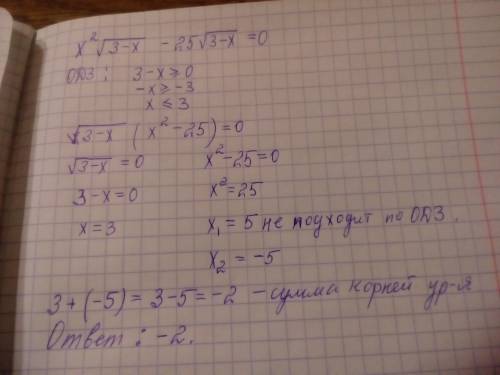 x²√3-x - 25√3-x = 0
ОДЗ: 3-x ≥ 0
-x ≥ -3
x ≤ 3
√3-x (x²-25) = 0
√3-x = 0 x²-25=0
3-x=0 x²=25
x=3 x₁ = 5 не подходит по ОДЗ.
x₂ = -5
3+(-5) = 3-5 = -2 - сумма корней ур-я
Ответ: -2.